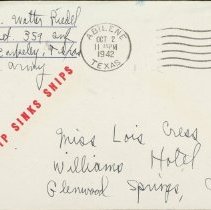 . Walter Riedel
359 Eng
Barkeley, Texas
Army
ABILENE
OCT 2
11 30 PM
1942
TEXAS
IP SINKS SHIPS
Miss Lois Cress
Williams Hotel
Glenwood Springs, C